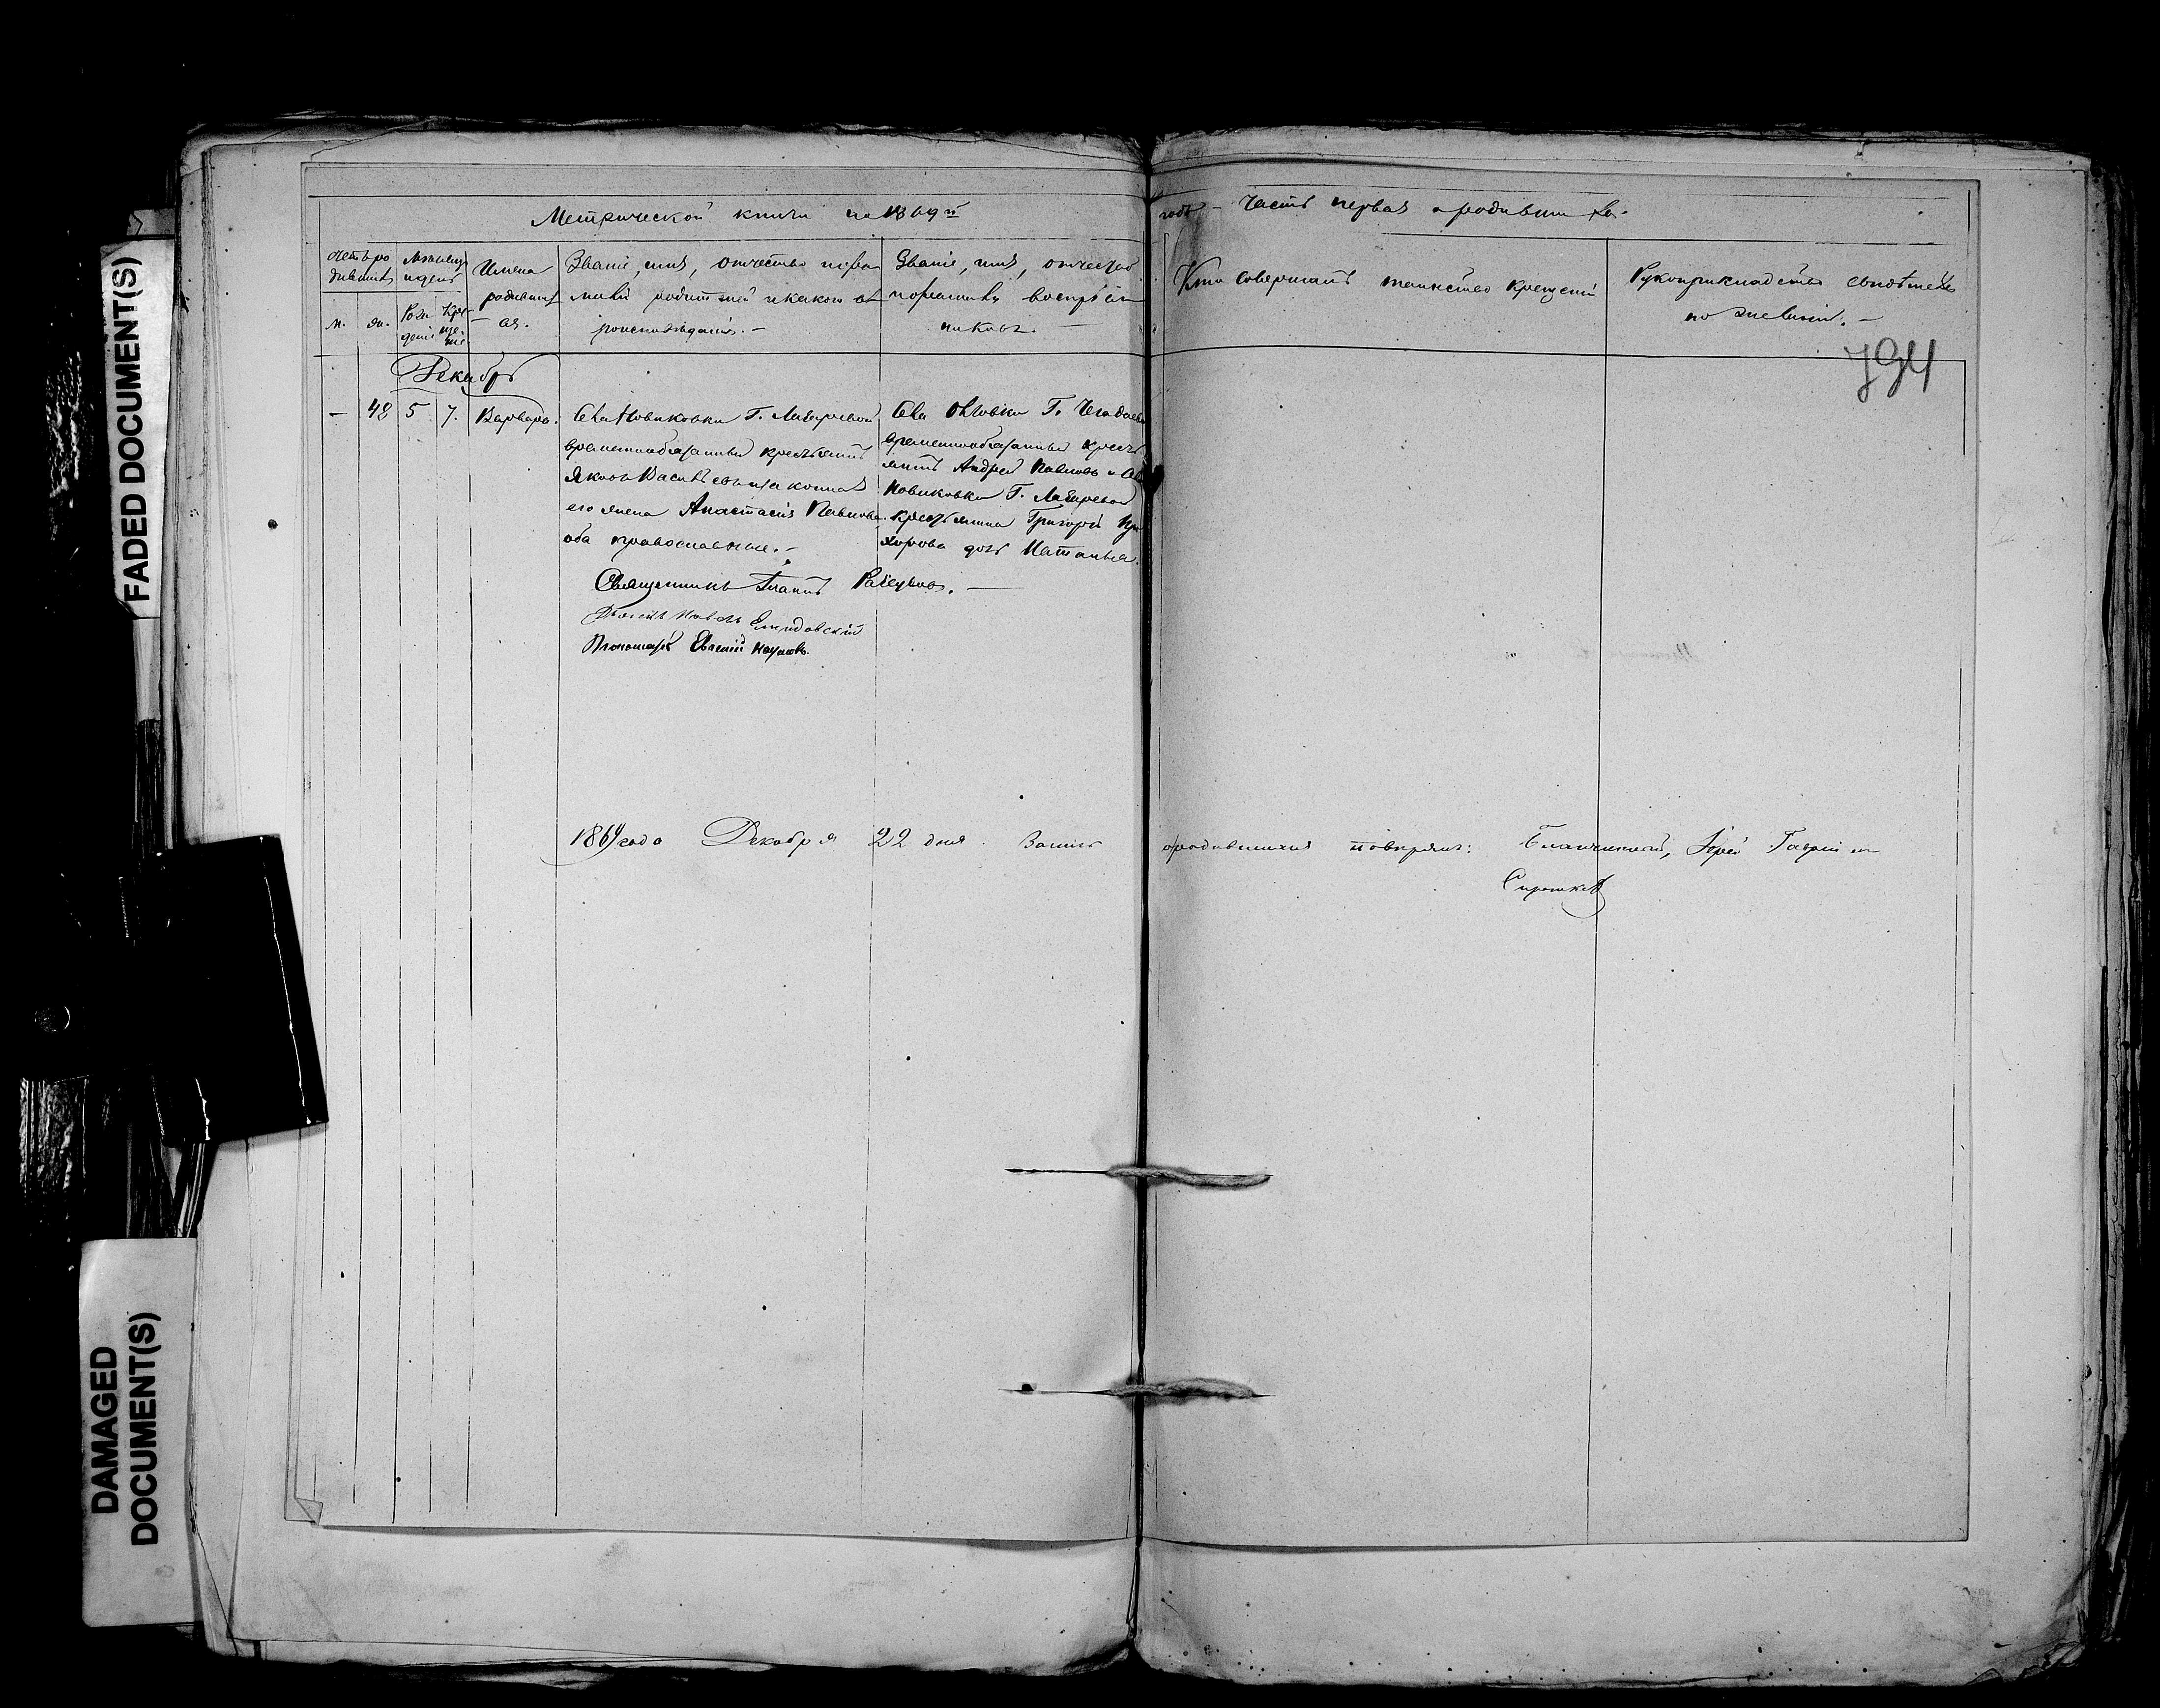 FADED DOCUMENT(S)
DAMAGED
DOCUMENT(S)
Метрической книги на 1869й годъ – Часть первая о родившихся.
Счетъ ро
дившихся
Мѣсяцъ
и день
м.
ж.
Рож
денія
Кре
ще
нія
Имена
родивших
– ся.
Званіе, имя, отчество и фа
милія родителей и какого вѣ
роисповѣданія. –
Званіе, имя, отчество
и фамилія воспріем
никовъ. –
Кто совершалъ таинство крещенія
Рукоприкладство свидѣтелей
по желанію. –
794
Декабрь
– 42 5 7. Варвара.
Села Новиковки Г. Лазаревой
временнообязанный крестьянинъ
Яковъ Васильевъ и законная
его жена Анастасія Павлова
оба православные. –
Села Г.
временнообязанный кресть
янинъ Андрей Павловъ и села
Новиковки Г. Лазаревой
крестьянина Григорія Про
хорова дочь Наталья.
Священникъ –
Діаконъ
Пономарь Евгеній Наумовъ.
1869 года Декабря 22 дня. Запись о родившихся повѣрялъ: Благочинный, Іерей Гавріилъ